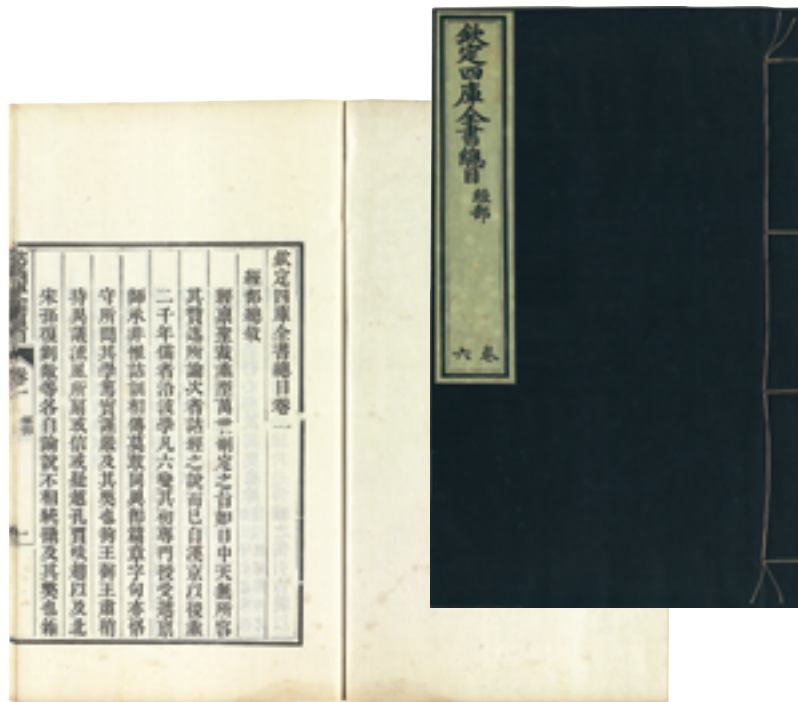 欽定四庫全書總目
經部
卷六
欽定四庫全書總目卷一
經部總敘
經稟聖裁垂型萬世刪定之旨如日中天無所容
其贊述所論次者詁經之說而已自漢京以後垂
二千年儒者沿波學凡六變其初專門授受遞稟
師承非惟詁訓相傳莫敢同異即篇章字句亦恪
守所聞其學篤實謹嚴及其弊也拘王弼王肅稍
持異議流風所扇或信或疑越孔賈啖趙以及北
宋孫復劉敞等各自論說不相統攝及其弊也雜
卷一
一